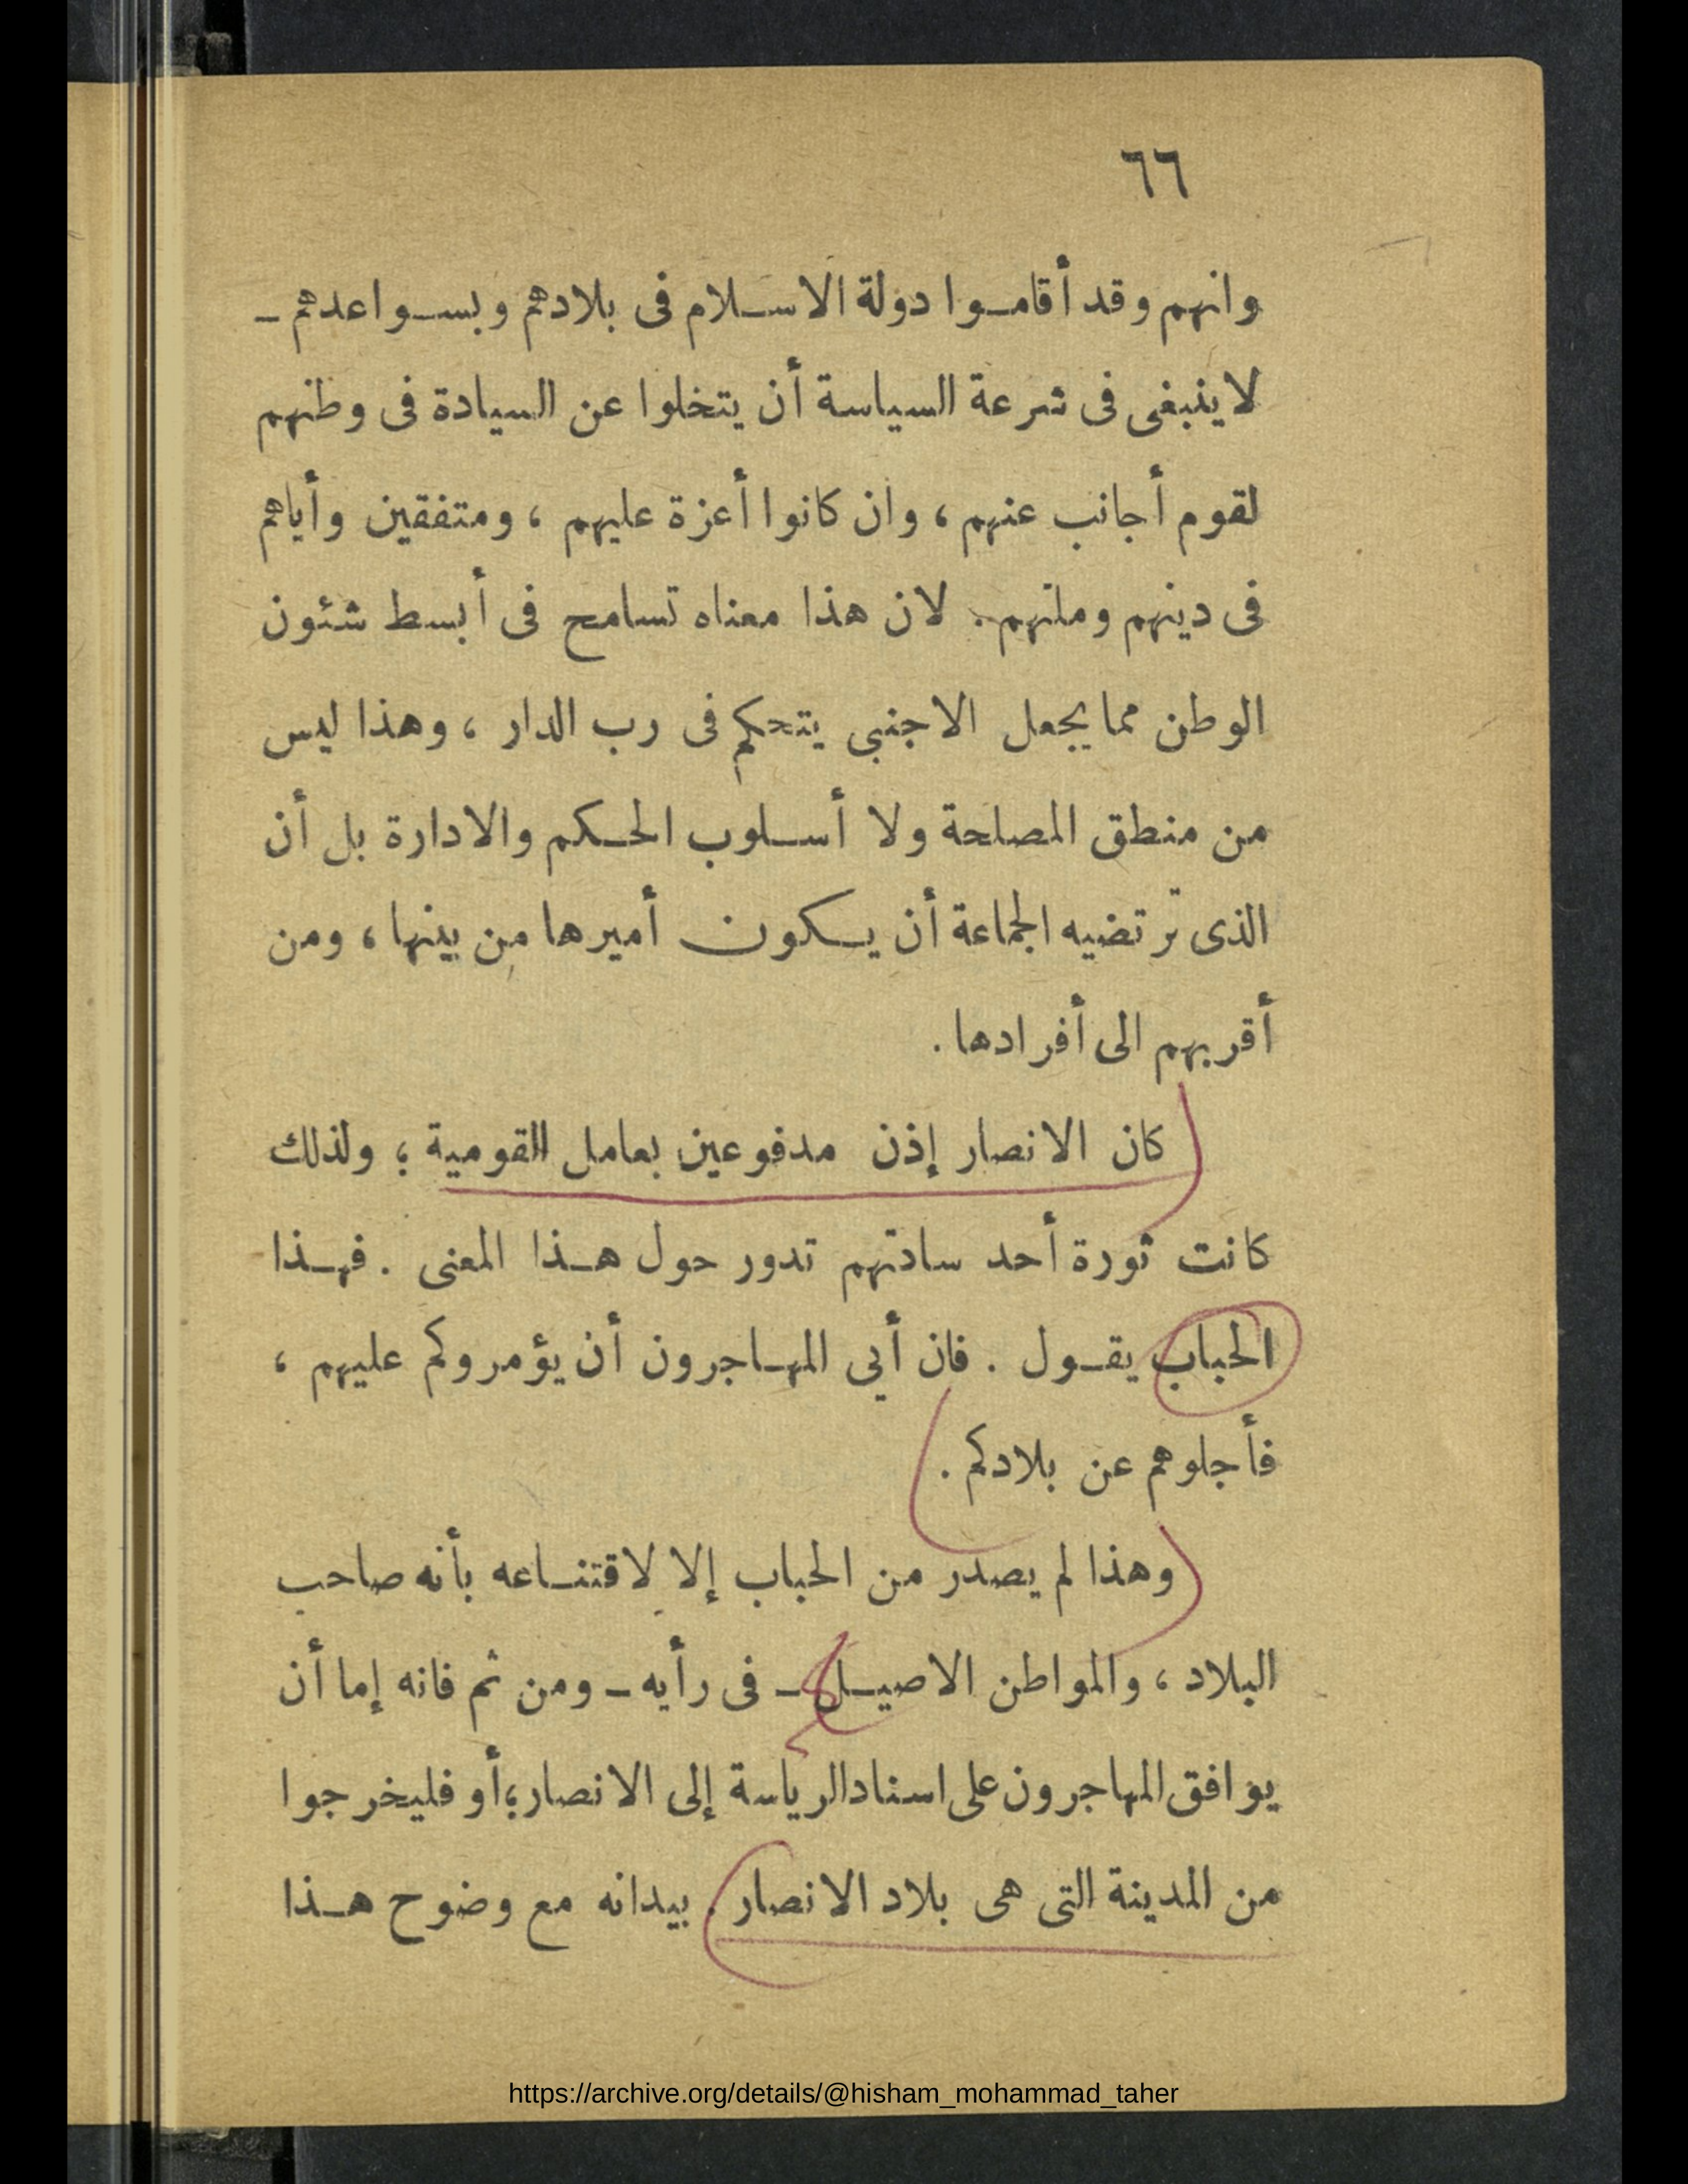 ٦٦
وانهم وقد أقاموا دولة الاسلام فى بلادهم وبسواعدهم ـ
لاينبغى فى شرعة السياسة أن يتخلوا عن السيادة فى وطنهم
لقوم أجانب عنهم ، وان كانوا أعزة عليهم ، ومتفقين وأياهم
فى دينهم وملتهم. لان هذا معناه تسامح فى أبسط شئون
الوطن مما يجعل الاجنبى يتحكم فى رب الدار ، وهذا ليس
من منطق المصلحة ولا أسلوب الحكم والادارة بل أن
الذى ترتضيه الجماعة أن يكون أميرها من بينها ، ومن
أقربهم الى أفرادها .
كان الانصار إذن مدفوعين بعامل القومية ؛ ولذلك
كانت ثورة أحد سادتهم تدور حول هذا المعنى . فهذا
الحباب يقول . فان أبى المهاجرون أن يؤمروكم عليهم ،
فأجلوهم عن بلادكم .
وهذا لم يصدر من الحباب إلا لاقتناعه بأنه صاحب
البلاد ، والمواطن الاصيل ـ فى رأيه ـ ومن ثم فانه إما أن
يوافق المهاجرون على اسناد الرياسة إلى الانصار ؛ أو فليخرجوا
من المدينة التى هى بلاد الانصار . بيدانه مع وضوح هذا
https://archive.org/details/@hisham_mohammad_taher